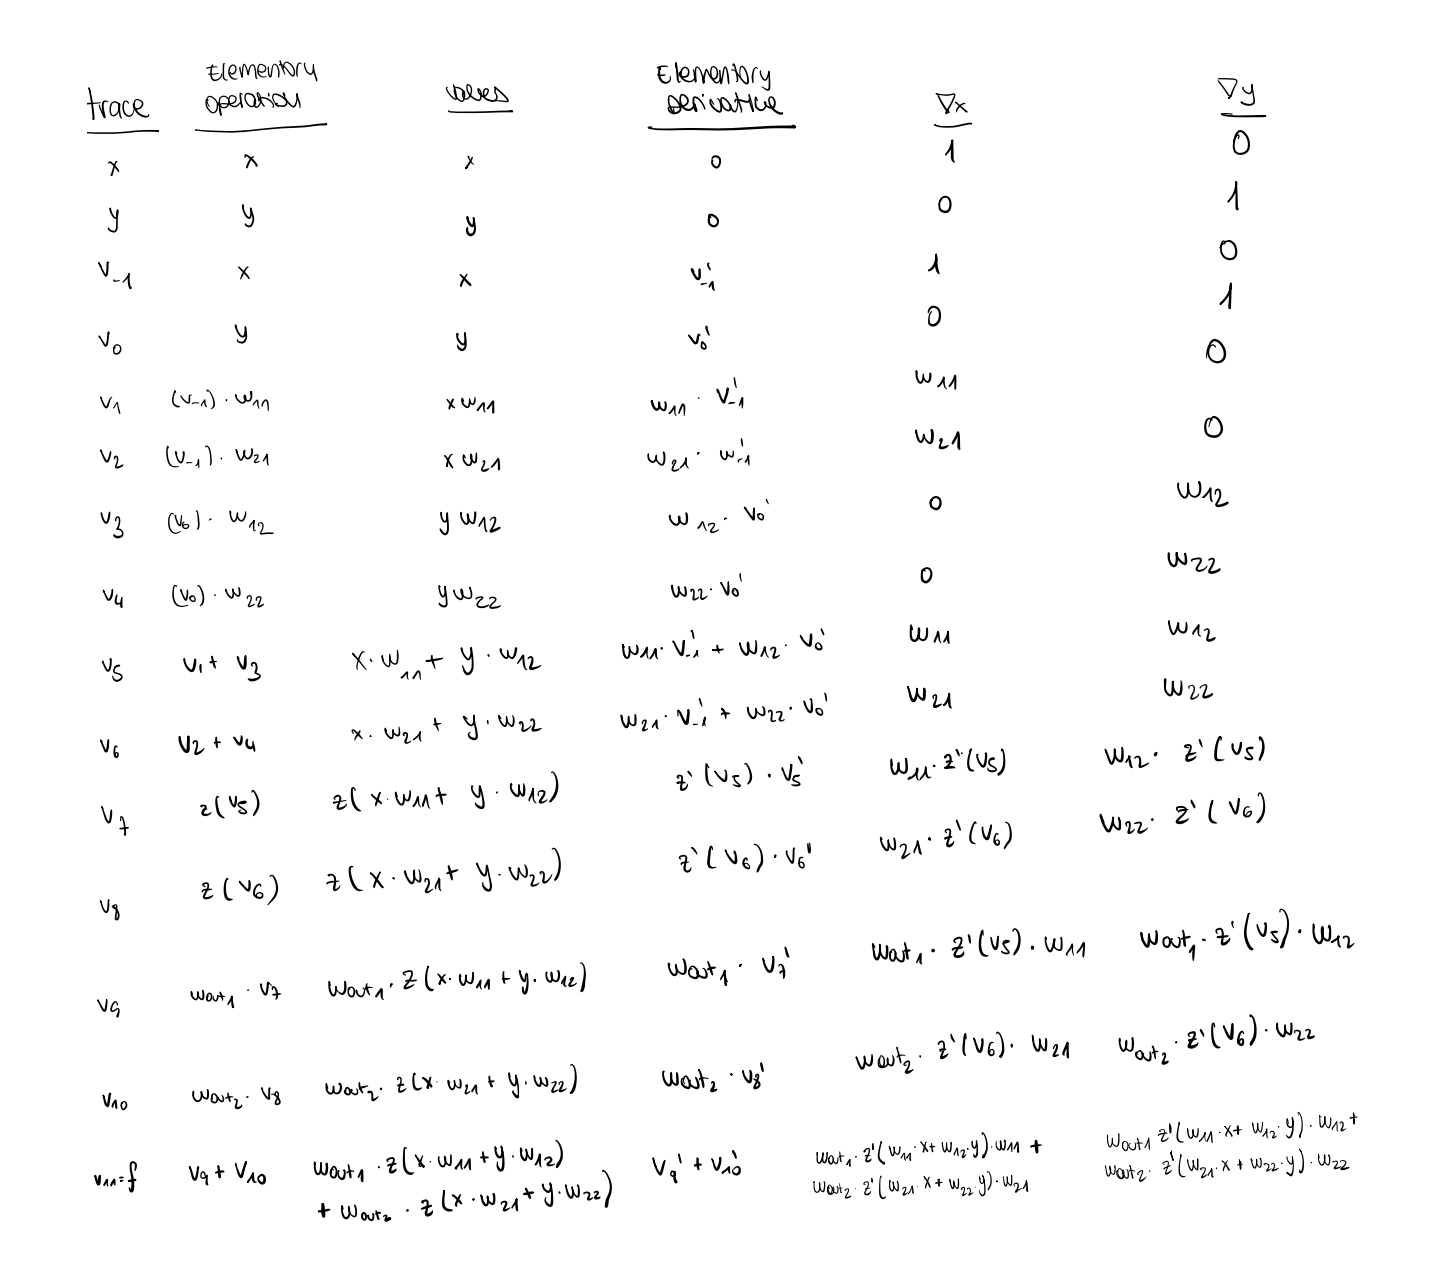 trace Elementary operation values Elementary Derivative ∇x ∇y
x x x 0 1 0
y y y 0 0 1
v₋₁ x x v₋₁' 1 0
v₀ y y v₀' 0 1
v₁ (v₋₁) · w₁₁ x w₁₁ w₁₁ · v₋₁' w₁₁ 0
v₂ (v₋₁) · w₂₁ x w₂₁ w₂₁ · w₋₁' w₂₁ 0
v₃ (v₀) · w₁₂ y w₁₂ w₁₂ · v₀' 0 w₁₂
v₄ (v₀) · w₂₂ y w₂₂ w₂₂ · v₀' 0 w₂₂
v₅ v₁ + v₃ x · w₁₁ + y · w₁₂ w₁₁ · v₋₁' + w₁₂ · v₀' w₁₁ w₁₂
v₆ v₂ + v₄ x · w₂₁ + y · w₂₂ w₂₁ · v₋₁' + w₂₂ · v₀' w₂₁ w₂₂
v₇ z(v₅) z(x · w₁₁ + y · w₁₂) z'(v₅) · v₅' w₁₁ · z'(v₅) w₁₂ · z'(v₅)
v₈ z(v₆) z(x · w₂₁ + y · w₂₂) z'(v₆) · v₆' w₂₁ · z'(v₆) w₂₂ · z'(v₆)
v₉ wout₁ · v₇ wout₁ · z(x · w₁₁ + y · w₁₂) wout₁ · v₇' wout₁ · z'(v₅) · w₁₁ wout₁ · z'(v₅) · w₁₂
v₁₀ wout₂ · v₈ wout₂ · z(x · w₂₁ + y · w₂₂) wout₂ · v₈' wout₂ · z'(v₆) · w₂₁ wout₂ · z'(v₆) · w₂₂
v₁₁=f v₉ + v₁₀ wout₁ · z(x · w₁₁ + y · w₁₂) v₉' + v₁₀' wout₁ · z'(w₁₁ · x + w₁₂ · y) · w₁₁ + wout₁ z'(w₁₁ · x + w₁₂ · y) · w₁₂ +
+ wout₂ · z(x · w₂₁ + y · w₂₂) wout₂ · z'(w₂₁ · x + w₂₂ · y) · w₂₁ wout₂ · z'(w₂₁ · x + w₂₂ · y) · w₂₂